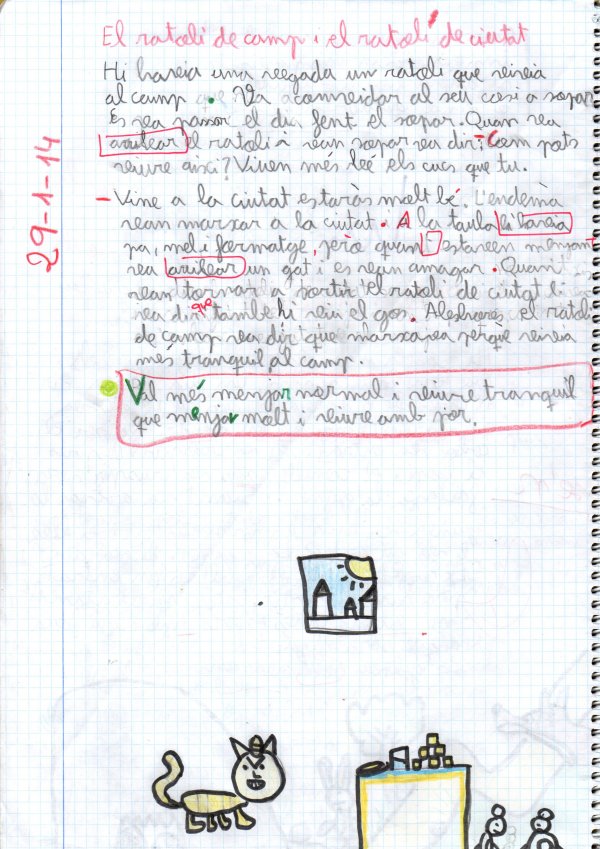 El ratolí de camp i el ratolí de ciutat
Hi havia una vegada un ratolí que vivia
al camp. Va aconvidar al seu cosí a sopar
Es va passar el dia fent el sopar. Quan va
arribar el ratolí i van sopar va dir: - Com pots
viure aixi? Viuen més bé els cucs que tu.
- Vine a la ciutat estaràs molt bé. L'endemà
van marxar a la ciutat. A la taula hi havia
pa, mel i formatge, però quan estaven menjant
va arribar un gat i es van amagar. Quan
van tornar a sortir el ratolí de ciutat li
va dir que també hi viu el gos. Aleshores el ratolí
de camp va dir que marxava perquè vivia
més tranquil al camp.
Val més menjar normal i viure tranquil
que menjar molt i viure amb por.
29-1-14